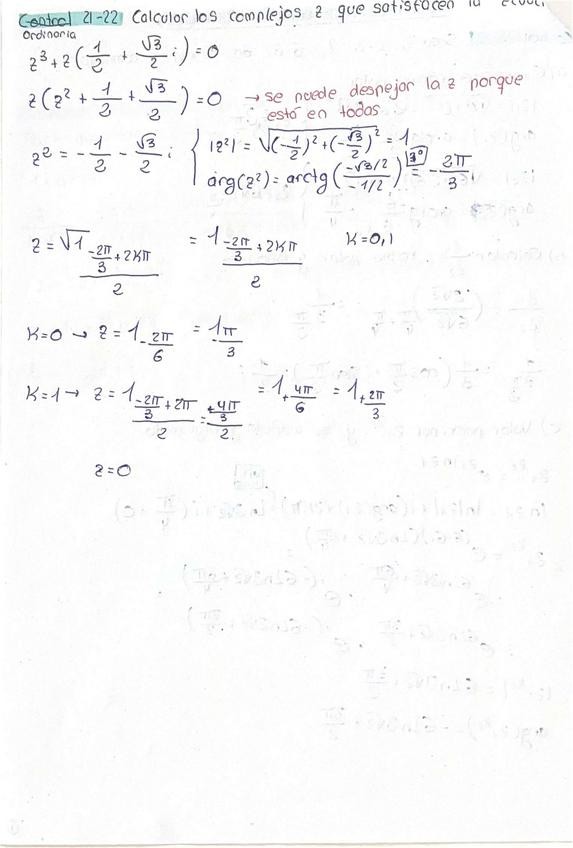 Control 21-22 Calcular los complejos z que satisfacen la
Ordinaria
z³ + z(1/2 + √3/2 i) = 0
z(z² + 1/2 + √3/2) = 0 → se puede despejar la z porque
está en todas
z² = -1/2 - √3/2 i { |z²| = √((-1/2)² + (-√3/2)²) = 1
arg(z²) = arctg((-√3/2)/(-1/2)) |3º = -2π/3
z = √1 (-2π/3 + 2kπ)/2 = 1 (-2π/3 + 2kπ)/2 K=0,1
K=0 → z = 1 -2π/6 = 1 -π/3
K=1 → z = 1 (-2π/3 + 2π)/2 = (+4π/3)/2 = 1 +4π/6 = 1 +2π/3
z=0